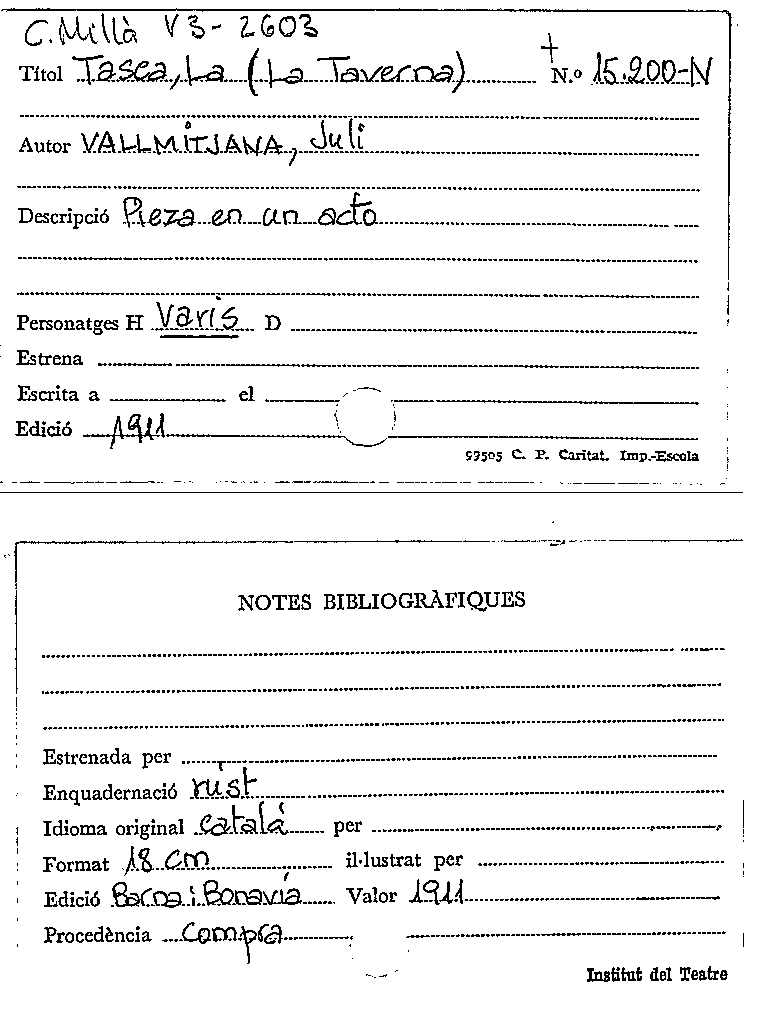 C. Millà V3-2603
Títol Tasca, La (La Taverna) N.º 15.200-N
Autor VALLMITJANA, Juli
Descripció Pieza en un acto
Personatges H Varis D
Estrena
Escrita a el
Edició 1911
99505 C. P. Caritat. Imp.-Escola
NOTES BIBLIOGRÀFIQUES
Estrenada per
Enquadernació rúst
Idioma original català per
Format 18 cm il·lustrat per
Edició Barna i Bonavia Valor 1911
Procedència compra
Institut del Teatre